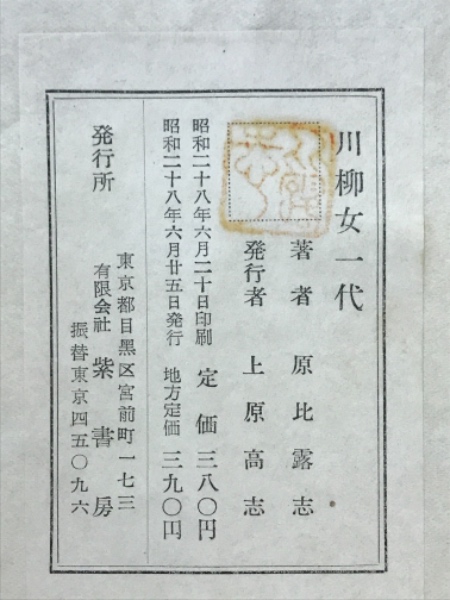 川柳女一代
著者 原比露志
発行者 上原高志
昭和二十八年六月二十日印刷 定価 三八〇円
昭和二十八年六月廿五日発行 地方定価 三九〇円
発行所
東京都目黒区宮前町一七三
有限会社 紫書房
振替東京四五〇九六